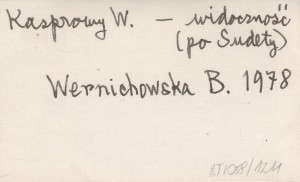 Kasprowy W. – widoczność
(po Sudety)
Wernichowska B. 1978